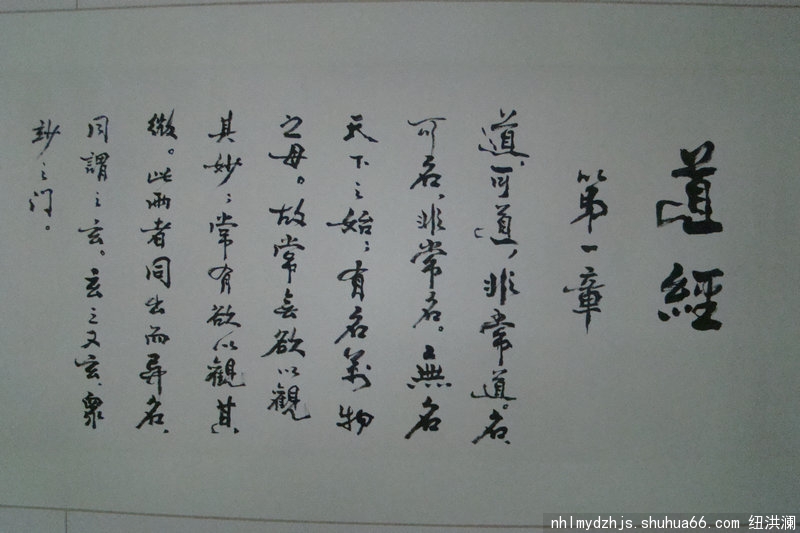 道經
第一章
道，可道，非常道。名，
可名，非常名。無名
天下之始；有名萬物
之母。故常無欲以觀
其妙；常有欲以觀其
徼。此兩者同出而异名，
同謂之玄。玄之又玄，衆
妙之门。
nhlmydzhjs.shuhua66.com 纽洪澜